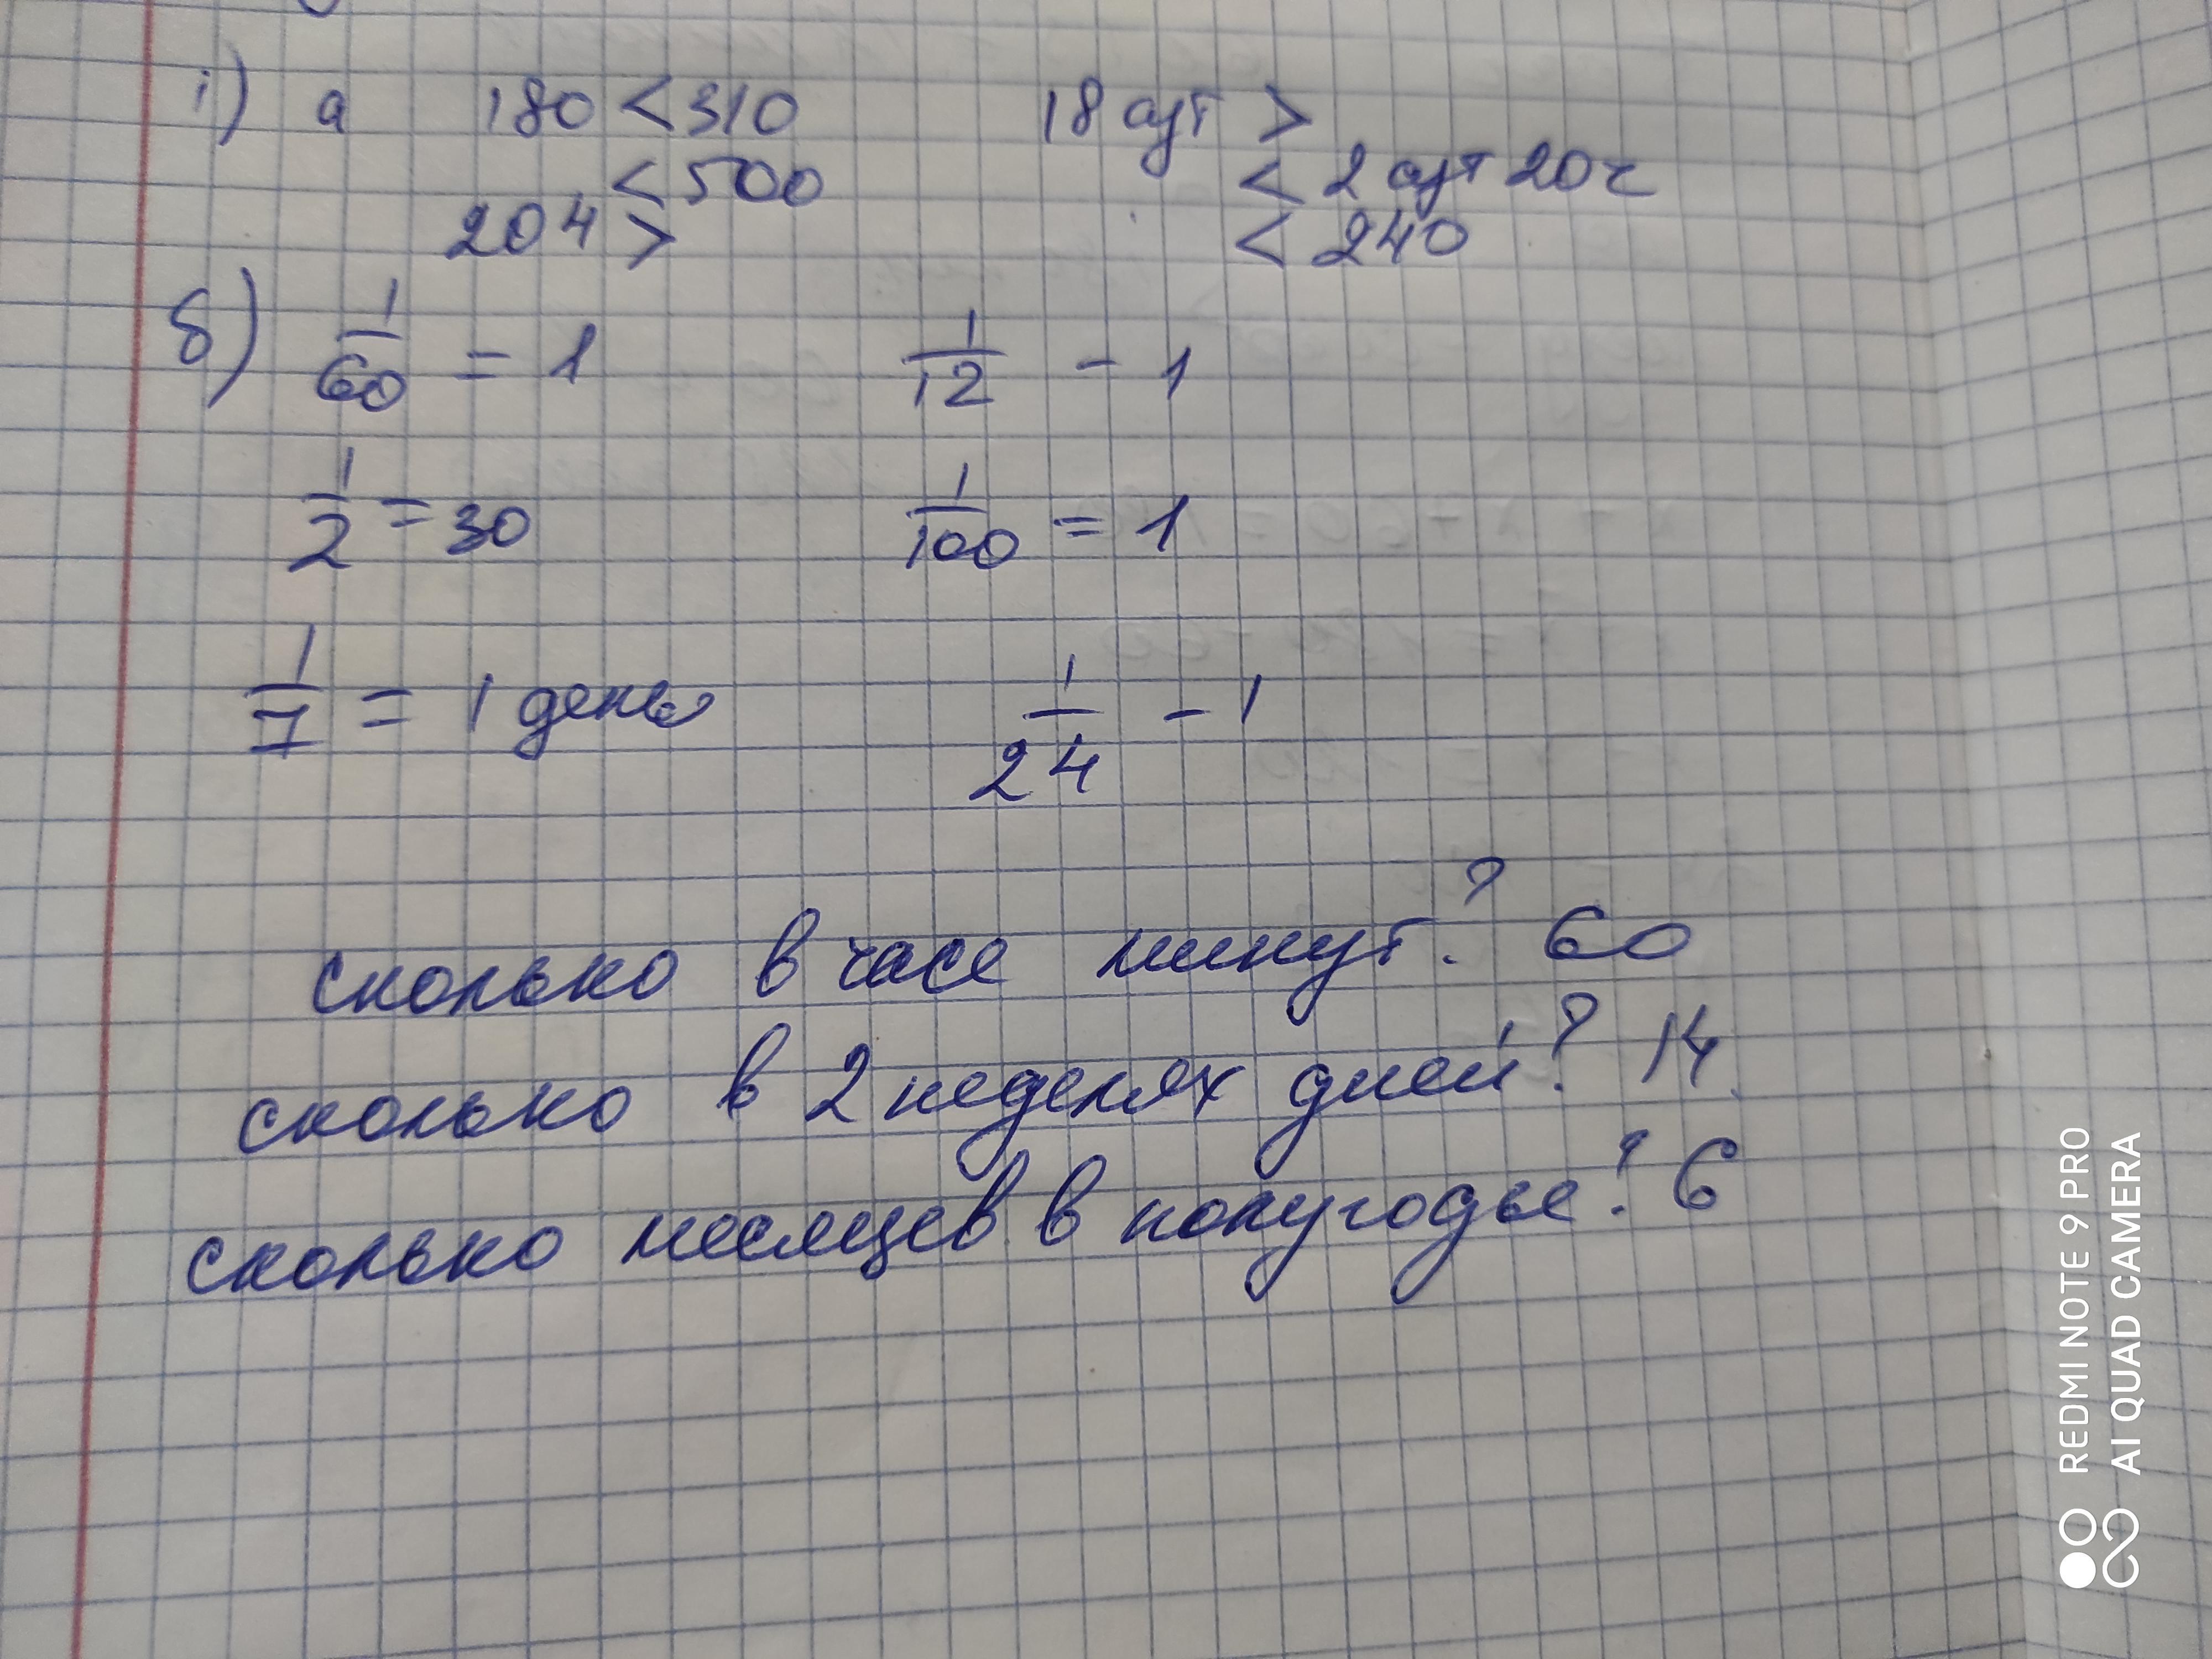 1) а 180 < 310 18 сут >
< 500 < 2 сут 20 ч
204 > < 240
б) 1/60 = 1 1/12 - 1
1/2 = 30 1/100 = 1
1/7 = 1 день 1/24 - 1
сколько в часе минут? 60
сколько в 2 неделях дней? 14
сколько месяцев в полугодье? 6
REDMI NOTE 9 PRO
AI QUAD CAMERA